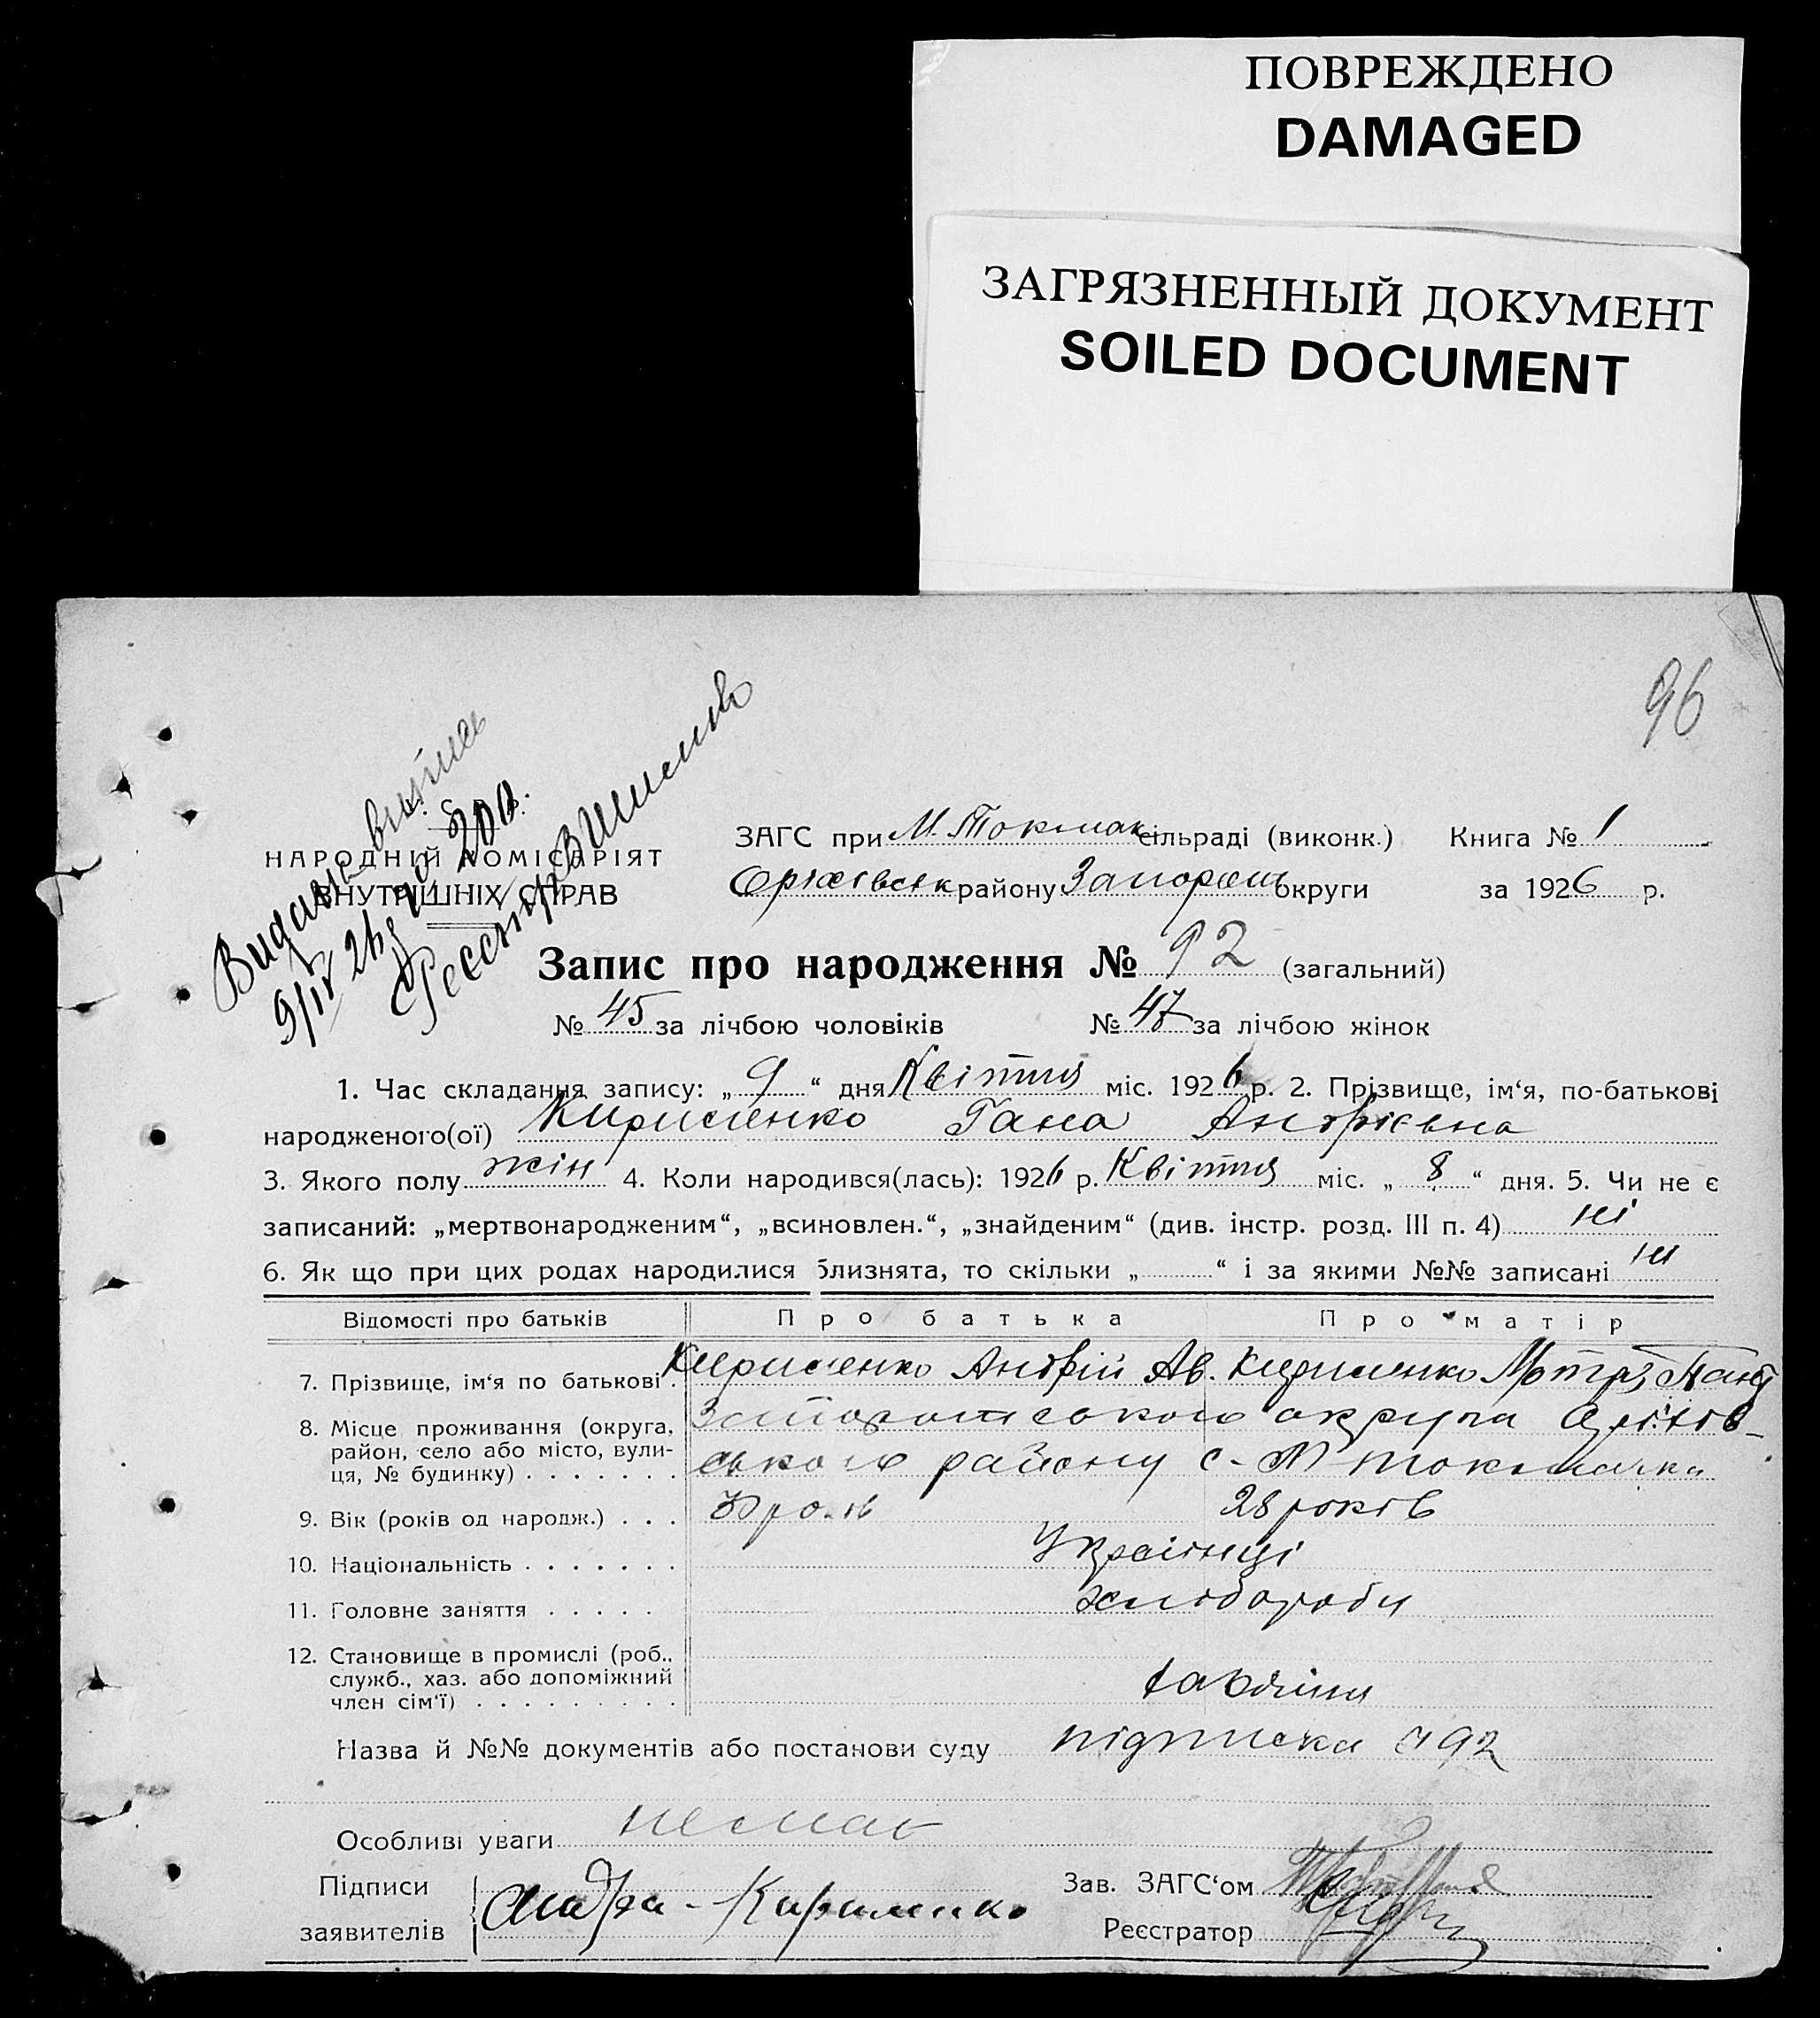 ПОВРЕЖДЕНО
DAMAGED
ЗАГРЯЗНЕННЫЙ ДОКУМЕНТ
SOILED DOCUMENT
96
НАРОДНІЙ КОМІСАРІЯТ
ВНУТРІШНІХ СПРАВ
ЗАГС при М. Токмак сільраді (виконк.) Книга № 1
Оріхівськ району Запорож округи за 1926 р.
Запис про народження № 92 (загальний)
№ 45 за лічбою чоловіків № 47 за лічбою жінок
1. Час складання запису: „ 9 “ дня Квітня міс. 1926 р. 2. Прізвище, ім‘я, по-батькові
народженого(ої) Кириченко Гана Андрієвна
3. Якого полу жін 4. Коли народився(лась): 1926 р. Квітня міс. „ 8 “ дня. 5. Чи не є
записаний: „мертвонародженим“, „всиновлен.“, „знайденим“ (див. інстр. розд. III п. 4) ні
6. Як що при цих родах народилися близнята, то скільки „ “ і за якими №№ записані ні
Відомості про батьків Про батька Про матір
7. Прізвище, ім‘я по батькові . Андрій Ав.
8. Місце проживання (округа, Запорожського округа Оріхів-
район, село або місто, вули- ського району с. М Токмачка
ця, № будинку) . . . . . . .
9. Вік (років од народж.) . . . 28 років
10. Національність . . . . . . . Українці
11. Головне заняття . . . . . хлібороби
12. Становище в промислі (роб.,
служб., хаз. або допоміжний
член сім‘ї) . . . . . . . . .
Назва й №№ документів або постанови суду підписка 492
Особливі уваги немає
Підписи
заявителів
Зав. ЗАГС‘ом
Реєстратор